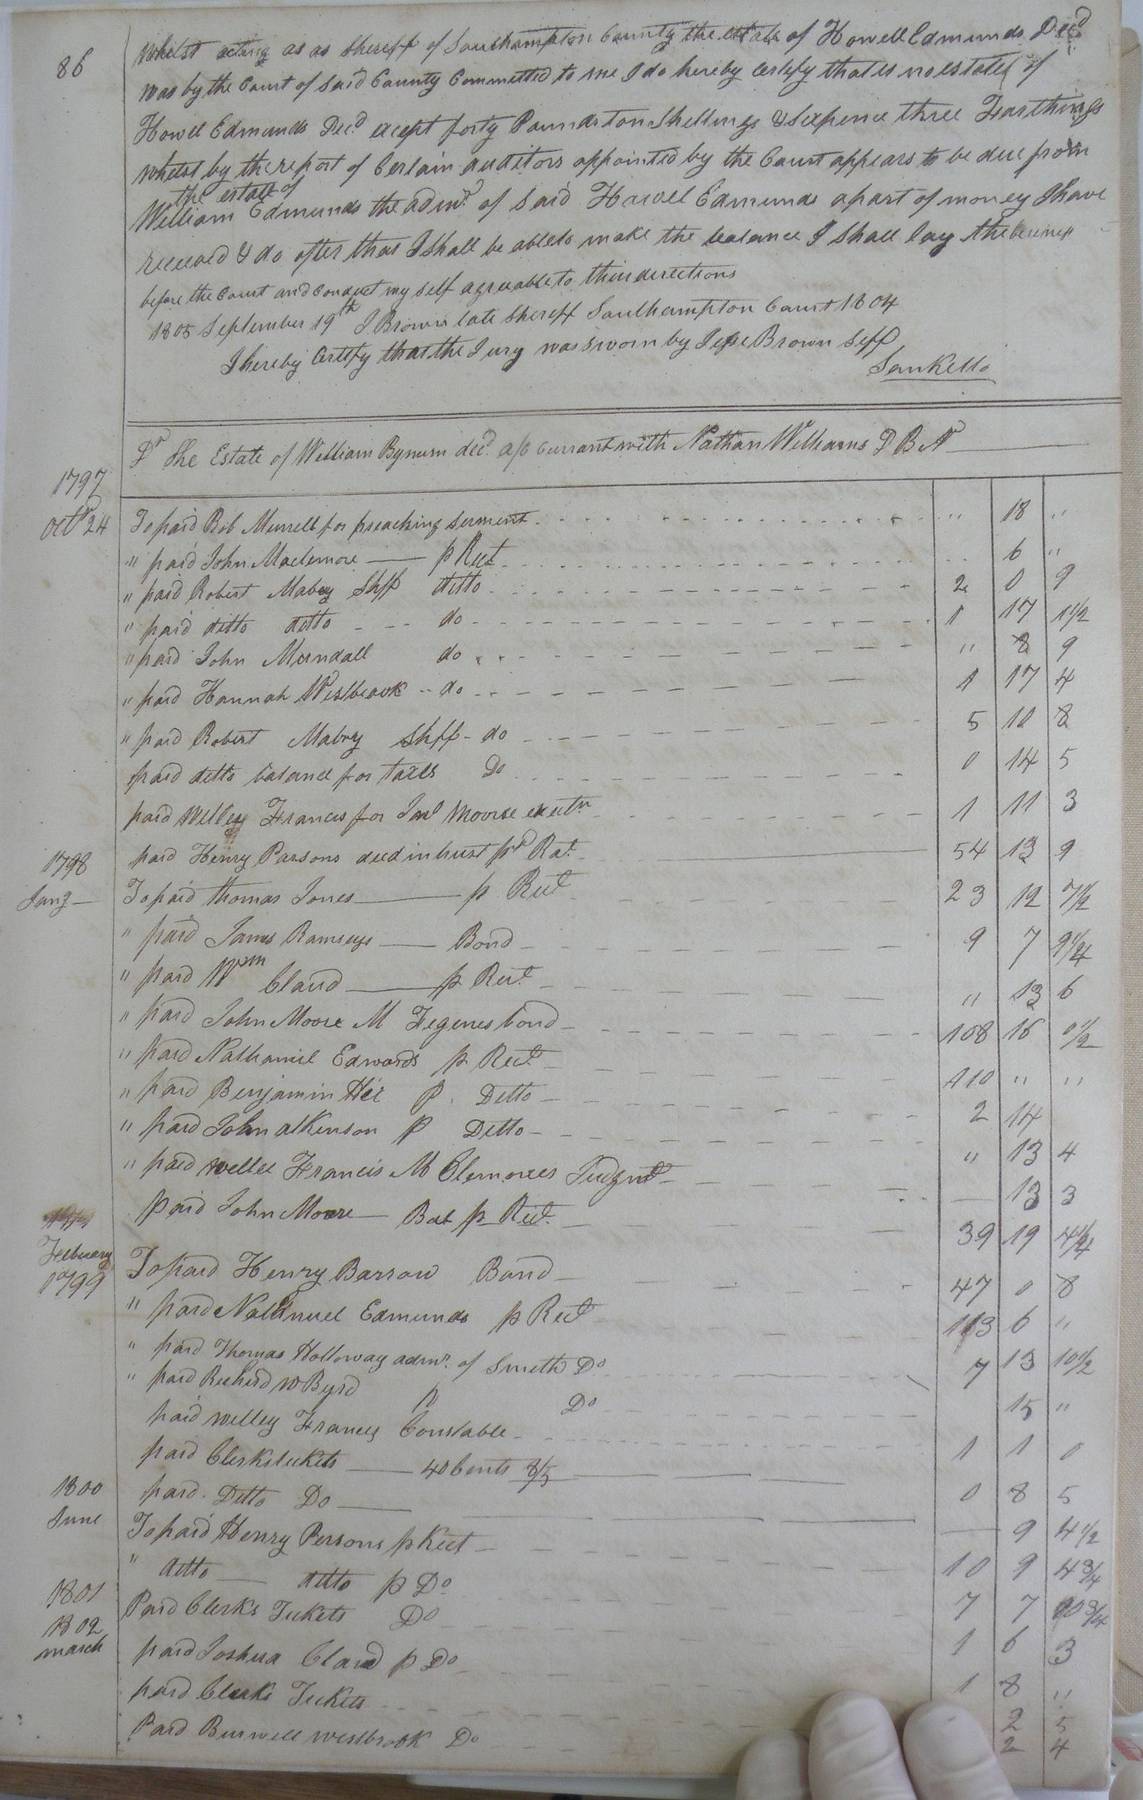 86
whilst acting as as Sheriff of Southampton County the estate of Howell Edmunds Decd
was by the Court of Said County Committed to me I do hereby Certify that is no estate of
Howell Edmunds Decd except forty Pounds ton Shellings & Sixpence three Farthings
whilst by the report of Certain auditors appointed by the Court appears to be due from
the estate of
William Edmunds the admr. of Said Howell Edmunds apart of money I have
received & do after that I Shall be able to make the balance I Shall lay the
before the Court and conduct my self agreeable to their directions
1805 September 19th J Brown late Sheriff Southampton Court 1804
I hereby Certify that the Jury was Sworn by Jesse Brown Sff
Sam Kello
Dr The Estate of William Bynum decd. a/c Currant with Nathan Williams D B N
1797
Octr 24 To paid Rob Murrell for preaching Serment " 18 "
" paid John Maclemore p Rect 6 "
" paid Robert Mabry Shff ditto 2 0 9
" paid ditto ditto do 1 17 1 1/2
" paid John Mundall do " 8 9
" paid Hannah Westbrook do 1 17 4
" paid Robert Mabry Shff do 5 10 8
paid ditto balance for taxes Do 0 14 5
paid Willey Francis for Jno Moore exetn 1 11 3
paid Henry Parsons deed in trust pd Rat. 54 13 9
1798
Jany To paid thomas Jones p Rect 23 12 7 1/2
" paid James Ramseys Bond 9 7 9 1/4
" paid Wm Claud p Rect " 13 6
" paid John Moore M Fegenes bond 108 16 0 1/2
" paid Nathaniel Edwards p Rect 110 " "
" paid Benjamin P. Ditto 2 14
" paid John atkinson P Ditto " 13 4
" paid willee Francis M Clemores Judgmt 13 3
paid John Moore Bal p Rect. 39 19 4 1/4
February
1799
To paid Henry Barrow Bond 47 0 8
" paid Nathnuel Edmunds p Rect 113 6 "
" paid Thomas Holloway admr. of Smith Do 7 13 10 1/2
" paid Richerd W Byrd p Do 15 "
paid willey Francis Constable 1 1 0
paid Clerks tickets 40 Cents 2/5 0 8 5
1800 paid Ditto Do 9 4 1/2
June To paid Henry Persons p Rect 10 9 4 3/4
" ditto ditto p Do 7 7 10 3/4
1801 Paid Clerks Tickets Do 1 6 3
1802
march paid Joshua Claud p Do 1 8 "
paid Clerks Tickets 2 5
Paid Burwell westbrook Do 2 4